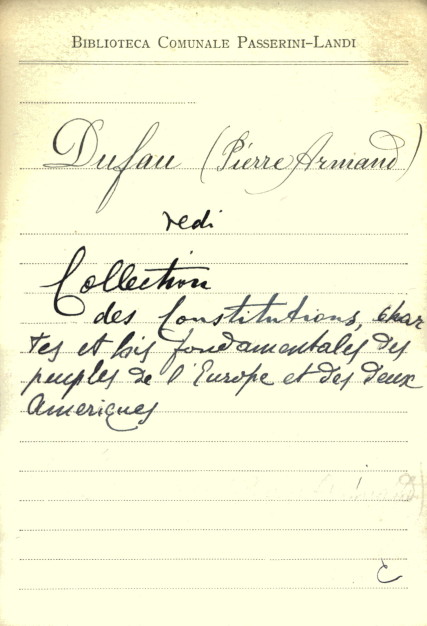 BIBLIOTECA COMUNALE PASSERINI-LANDI
Dufau (Pierre Armand)
vedi
Collection
des Constitutions, char
tes et lois fondamentales des
peuples de l'Europe et des deux
Ameriques
C